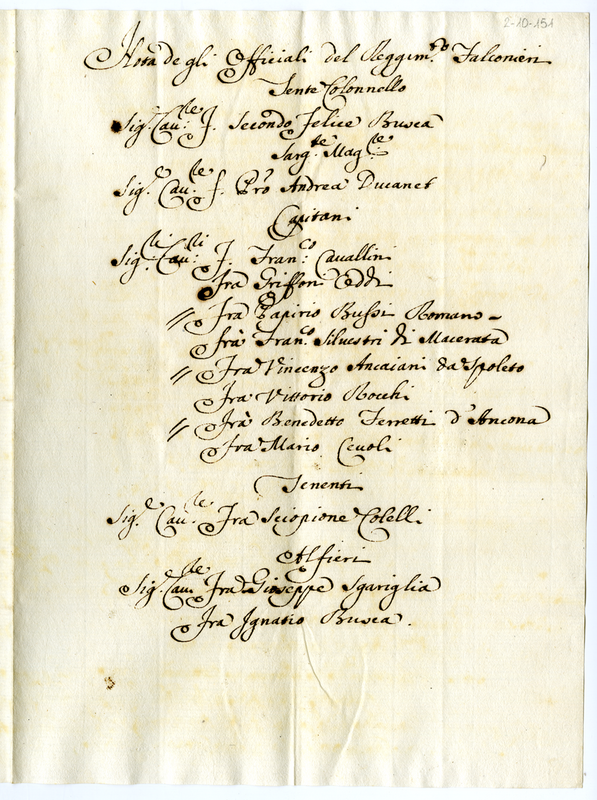 2-10-151
Nota de gli Officiali del Reggim.to Falconieri
Tente Colonnello
Sig.e Cau.re F. Secondo Felice Busca
Sarg.te Mag.re
Sig.e Cau.re f. Pro Andrea Ducanet
Capitani
Sig.ri Cau.ri F. Fran.co Cavallini
Fra Griffon
// Fra Papirio Bussi Romano -
frà Fran.co Silvestri di Macerata
// Fra Vincenzo Ancaiani da Spoleto
Fra Vittorio Rocchi
// Frà Benedetto Ferretti d'Ancona
Fra Mario Ceuoli
Tenenti
Sig.e Cau.re Fra Scipione Colelli
Alfieri
Sig.e Cau.re Fra Gioseppe Sgariglia
Fra Ignatio Busca.